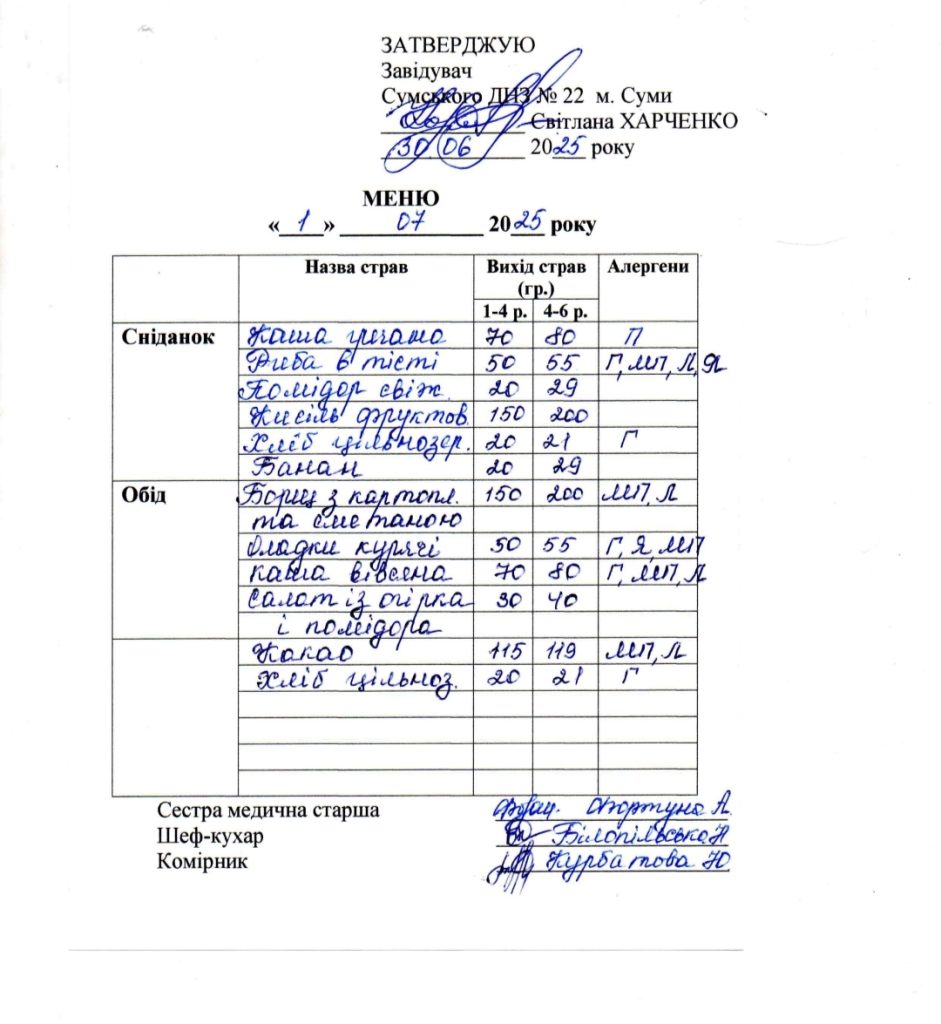 ЗАТВЕРДЖУЮ
Завідувач
Сумського ДНЗ № 22 м. Суми
Світлана ХАРЧЕНКО
30 06 2025 року
МЕНЮ
« 1 » 07 2025 року
Назва страв Вихід страв (гр.) Алергени
1-4 р. 4-6 р.
Сніданок Каша гречана 70 80 П
Риба в тісті 50 55 Г, МП, Л, Я
Помідор свіж. 20 29
Кисіль фруктов. 150 200
Хліб цільнозер. 20 21 Г
Банан 20 29
Обід Борщ з картопл. 150 200 МП, Л
та сметаною
Оладки курячі 50 55 Г, Я, МП
каша вівсяна 70 80 Г, МП, Л
Салат із огірка 30 40
і помідора
Какао 115 119 МП, Л
Хліб цільноз. 20 21 Г
Сестра медична старша Фортуна А.
Шеф-кухар Білопільська Н
Комірник Курбатова Ю